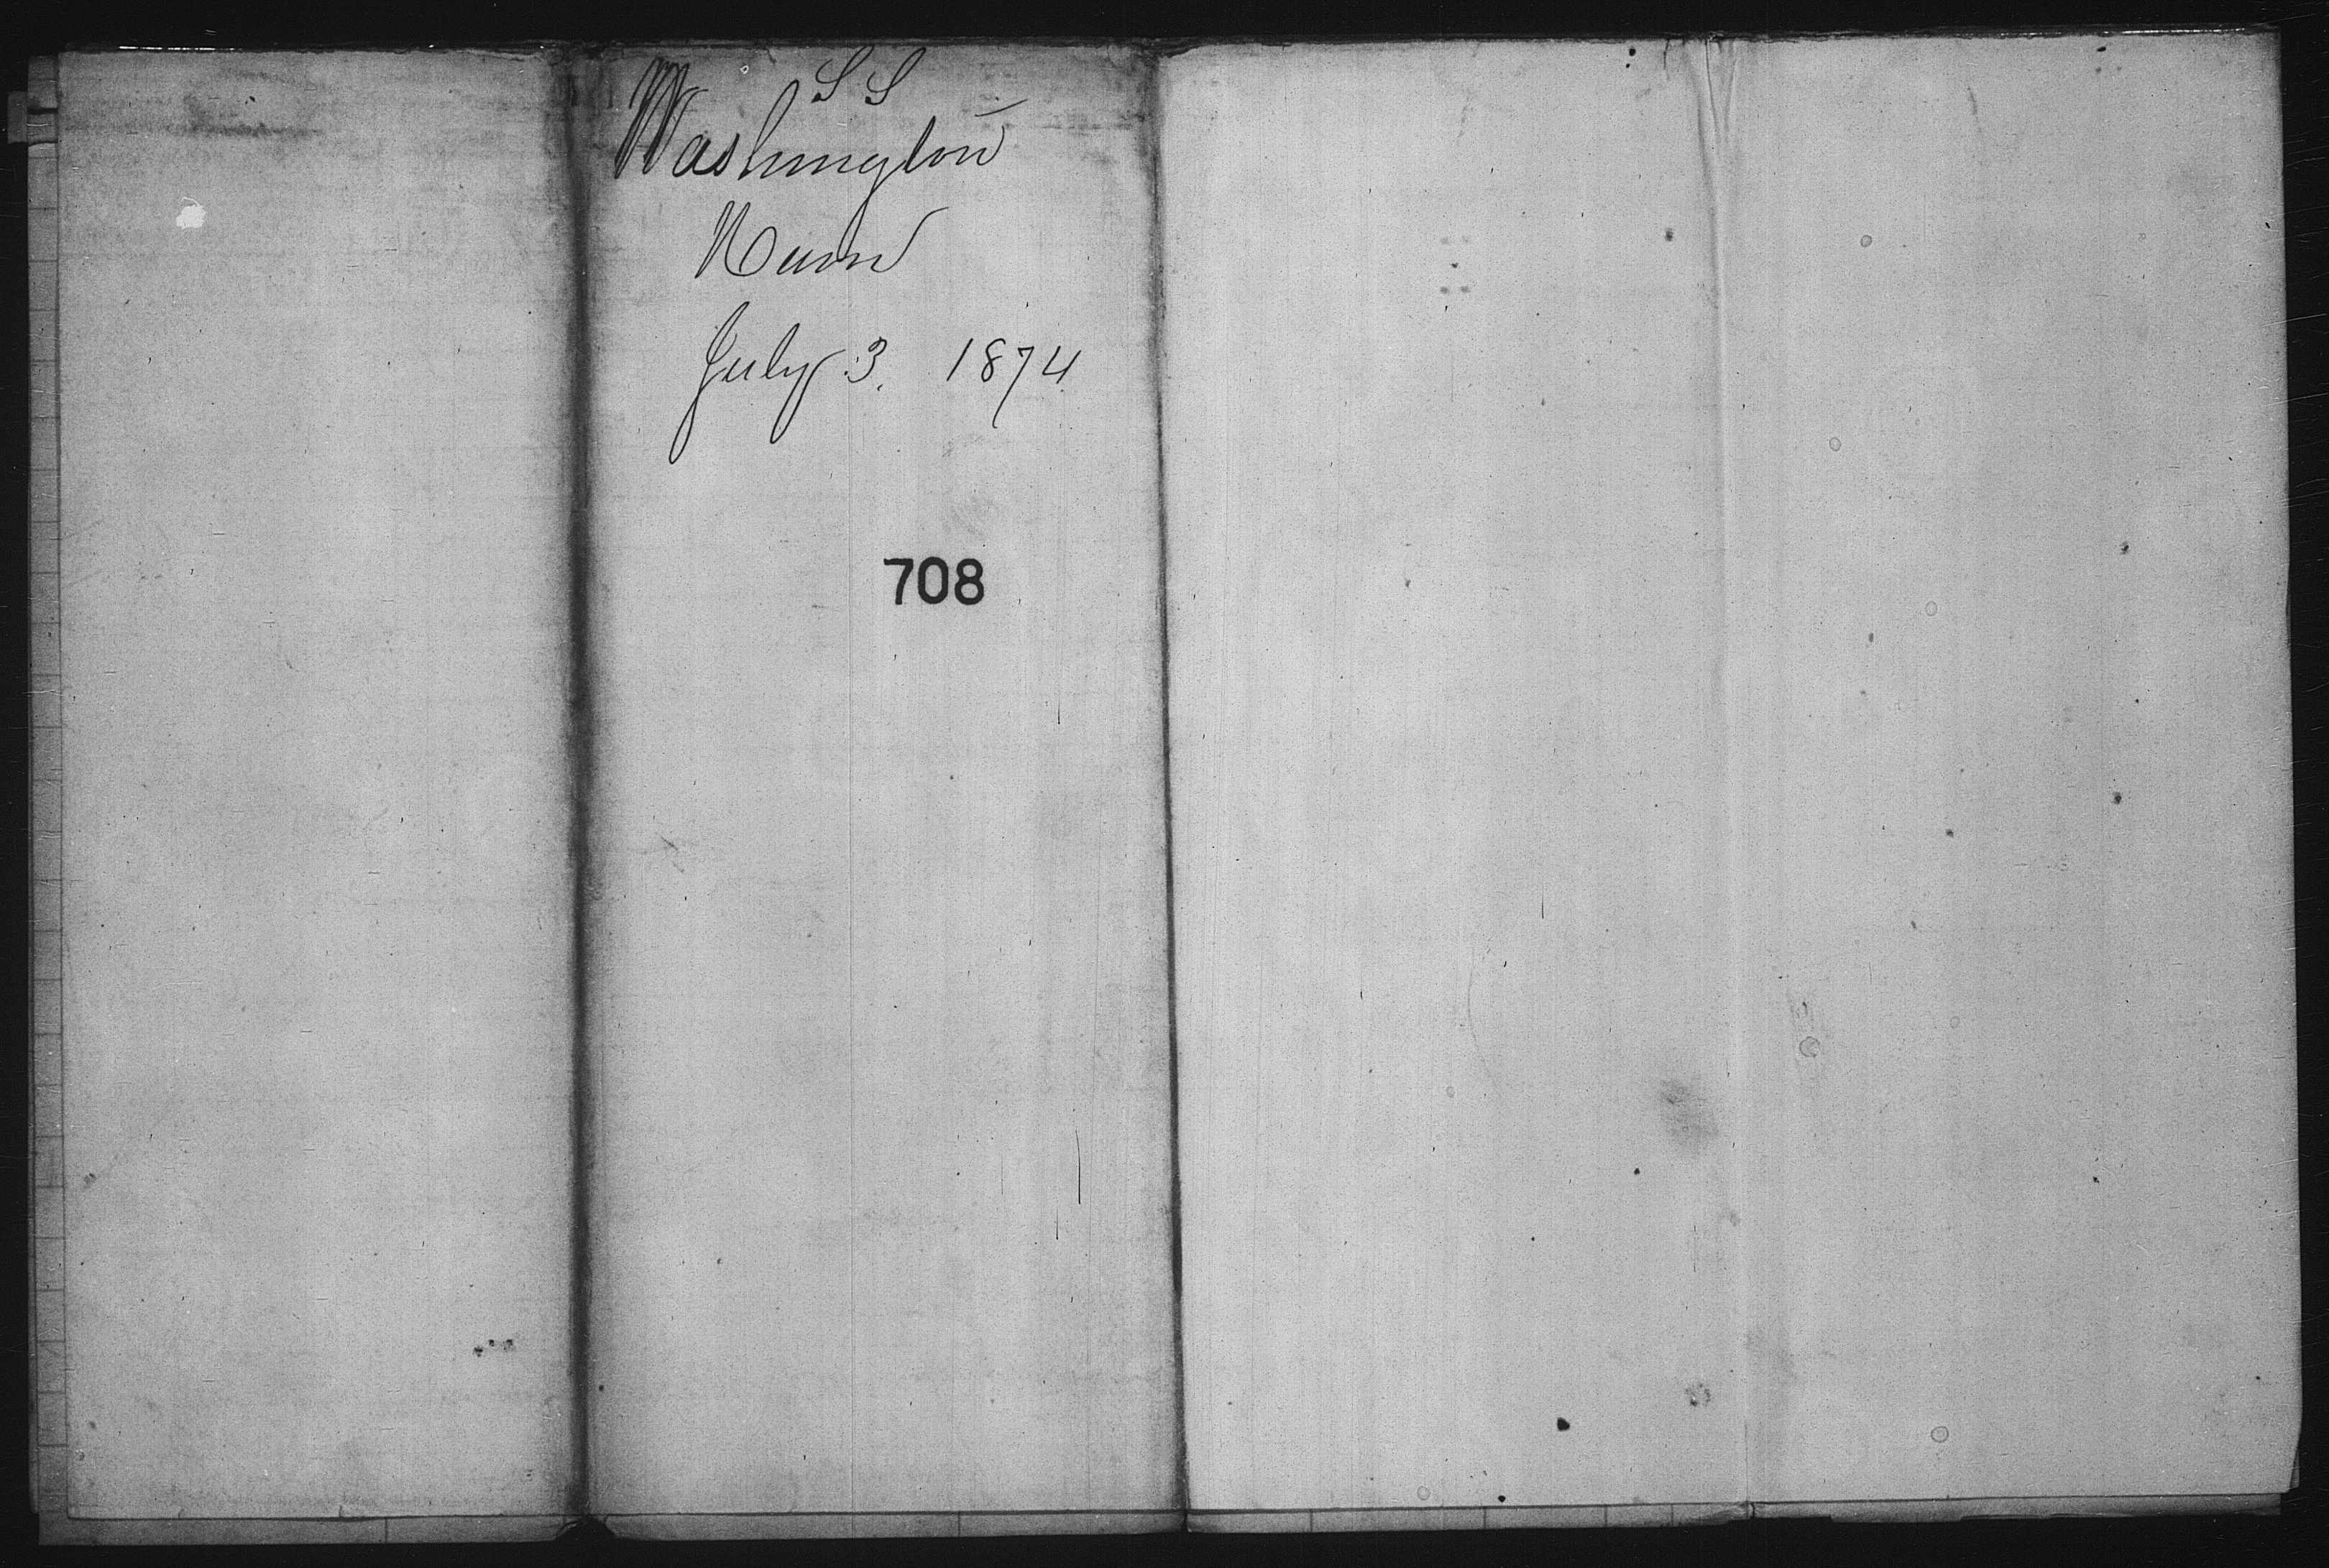 S S
Washington
Noon
July 3. 1874
708